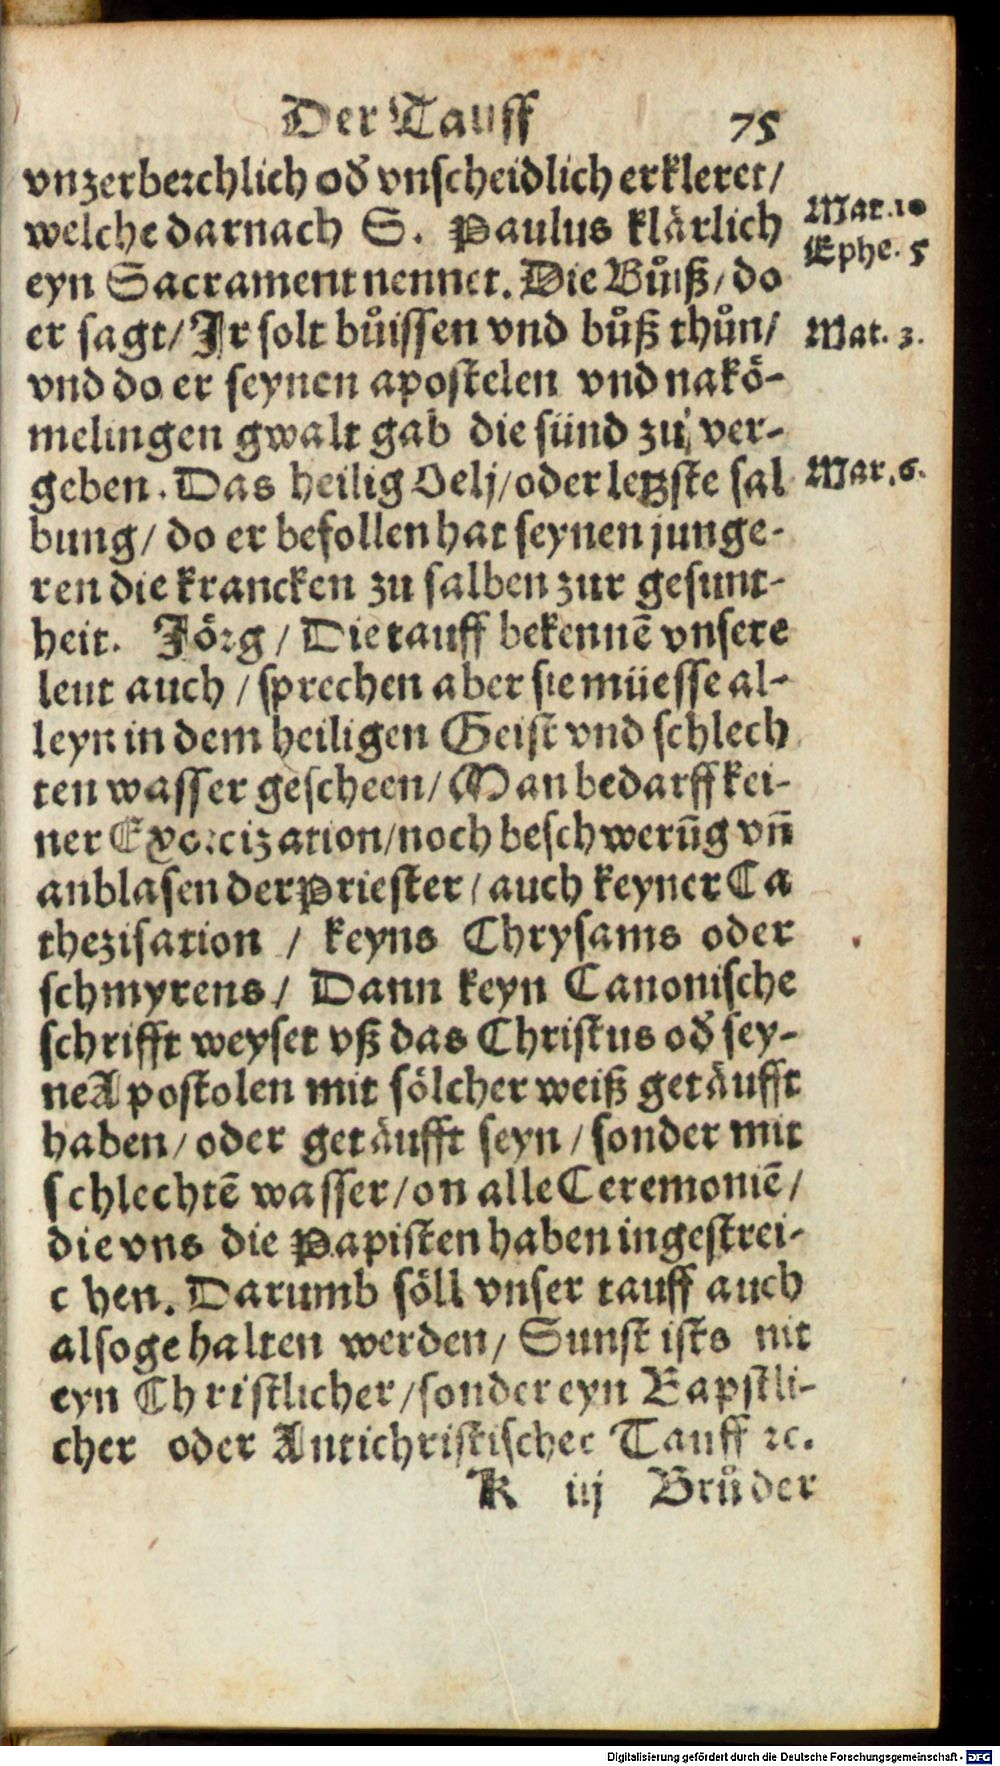 Der Tauff 75
vnzerberchlich od̃ vnscheidlich erkleret/
welche darnach S. Paulus klärlich
Mar. 10
Ephe. 5
eyn Sacrament nennet. Die Bůiß/ do
er sagt/ Ir solt bůissen vnd bůß thůn/
Mat. 3.
vnd do er seynen apostelen vnd nakö-
melingen gwalt gab die sünd zů ver-
geben. Das heilig Oelj/ oder letzste sal
Mar. 6.
bung/ do er befollen hat seynen junge-
ren die krancken zu salben zur gesunt-
heit. Jörg/ Die tauff bekennẽ vnsere
leut auch/ sprechen aber sie müesse al-
leyn in dem heiligen Geist vnd schlech
ten wasser gescheen/ Man bedarff kei-
ner Exorcization/ noch beschwerũg vñ
anblasen der Priester/ auch keyner Ca
thezisation / keyns Chrysams oder
schmyrens/ Dann keyn Canonische
schrifft weyset vß das Christus od̃ sey-
ne Apostolen mit sölcher weiß getäufft
haben/ oder getäufft seyn/ sonder mit
schlechtẽ wasser/ on alle Ceremoniẽ/
die vns die Papisten haben ingestrei-
chen. Darumb söll vnser tauff auch
also gehalten werden/ Sunst ists nit
eyn Christlicher/ sonder eyn Bapstli-
cher oder Antichristischer Tauff ꝛc.
K iij Brůder
Digitalisierung gefördert durch die Deutsche Forschungsgemeinschaft - DFG